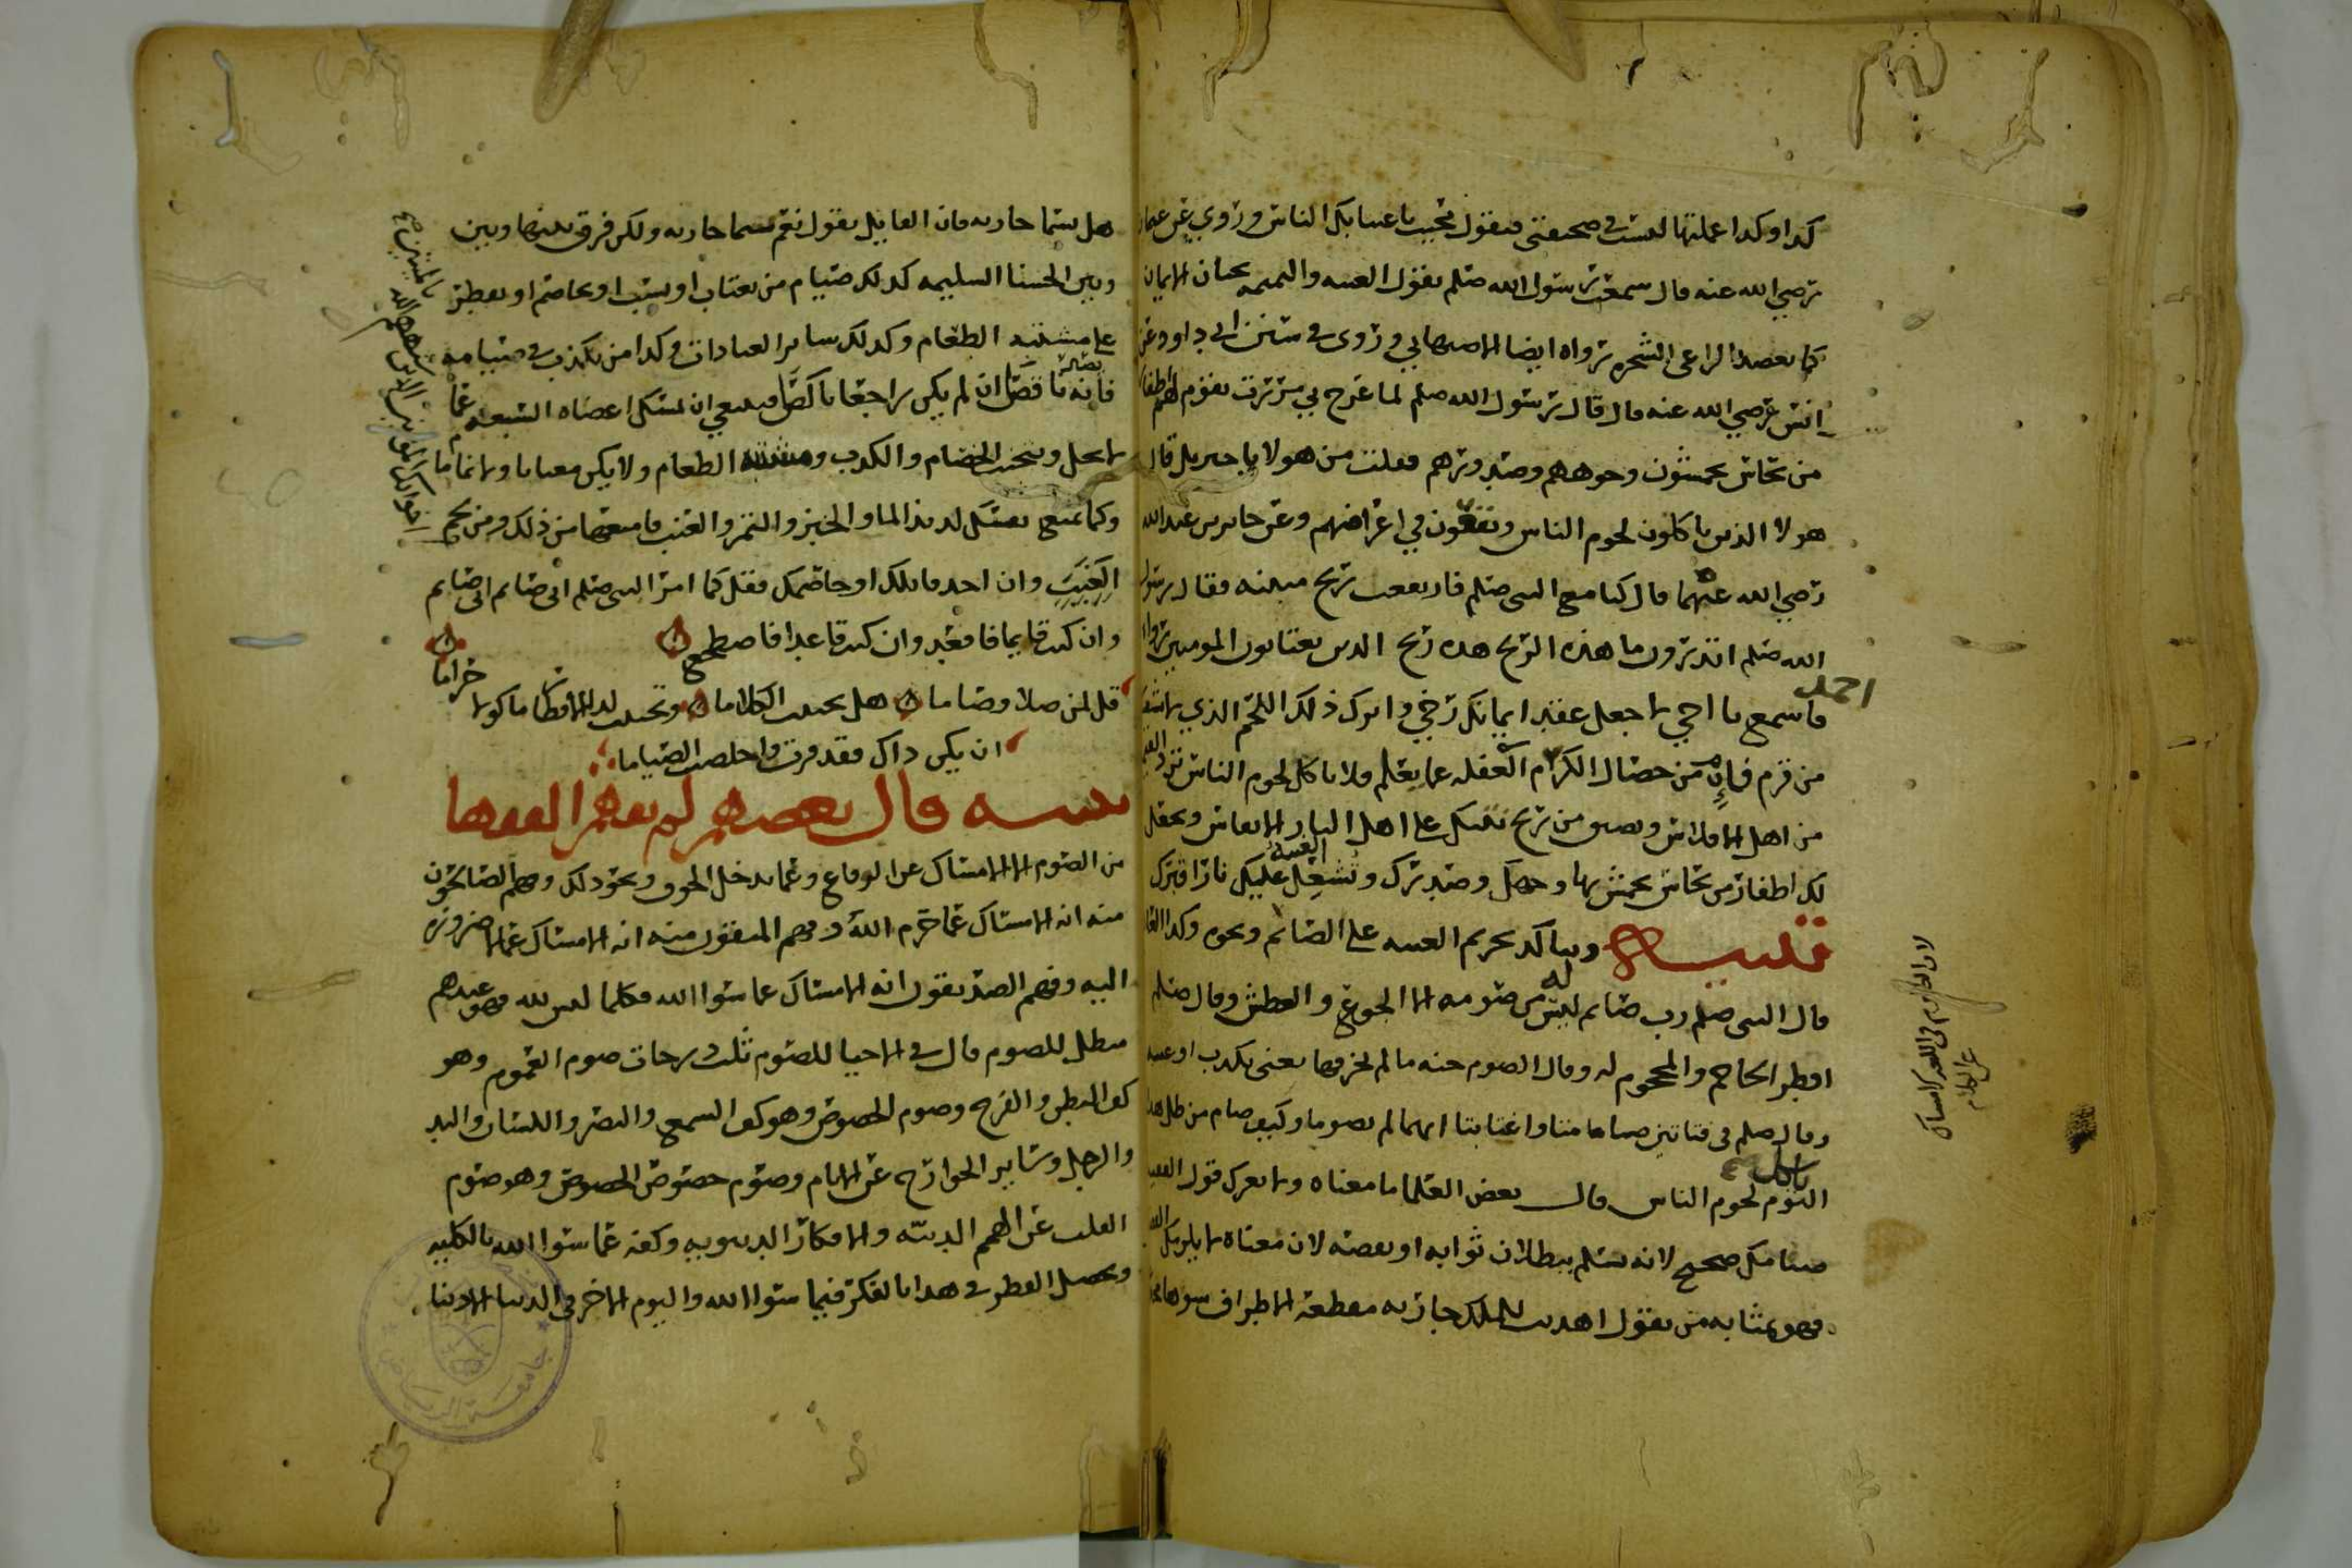 كذا وكذا عملتها ليست في صحيفتي فيقول محيت باغتيابك الناس وروي عن عثمان
رضي الله عنه قال سمعت رسول الله صلم يقول الغيبه والنميمه يحتان الايمان
كما يعضد الراعي الشجره رواه ايضا الاصبهاني وروى في سنن ابي داود عن
انس رضي الله عنه قال قال رسول الله صلم لما عرج بي مررت بقوم لهم اظفار
من نحاس يخمشون وجوههم وصدورهم فقلت من هولا يا جبريل قال
هولا الذين ياكلون لحوم الناس ويقعون في اعراضهم وعن جابر بن عبد الله
رضي الله عنهما قال كنا مع النبي صلم فارتفعت ريح منتنه فقال رسول
الله صلم اتدرون ما هذه الريح هذه ريح الذين يغتابون المومنين رواه
احمد
فاسمع يا اخي لا جعل عقد ايمانك رخي واترك ذلك اللحم الذي
من قرم فإن من خصال الكرم الغفله عما يعلم ولا ياكل لحوم الناس
من اهل الافلاس ويصير من ريح على اهل النار الانفاس ويجعل
لك اظفار من نحاس يخمش بها وجهك وصدرك وتشعل الغيبة عليك نارا
تنبيه ويتاكد تحريم الغيبه على الصائم ونحوه وكذا
قال النبي صلم رب صايم ليس له من صومه الا الجوع والعطش وقال صلم
افطر الحاجم والمحجوم له وقال الصوم جنه ما لم يخرقها يعني بكذب او غيبه
وقال صلم في فتاتين صامتا واغتابتا انهما لم يصوما وكيف صام من ظل هذا
اليوم ياكل لحوم الناس قال بعض العلما ما معناه ولا يغرك قول الفقيه
صيامك صحيح لانه يسلم ببطلان ثوابه او بعضه لان معناه لا يلزمك
فهو بمثابه من يقول اهديت للملك جاريه مقطعة الاطراف
هل يسما جاريه فان القايل يقول نعم تسما جاريه ولكن فرق بينها وبين
وبين الحسنا السليمه كذلك صيام من يغتاب او يسب او يخاصم او يفطر
على مشتبه الطعام وكذلك ساير العبادات وكذا من يكذب في صيامه
فانه ناقصا ان لم يكن راجعا ناكصا فينبغي ان تمسك اعضاه السبعه عما
لا يحل ويتجنب الخصام والكذب ومشتبه الطعام ولا يكن مغتابا ولا نماما
وكما تمنع نفسك لذيذ الما والخبز والتمر والعنب فامنعها من ذلك ومن
الغيبت وان احد قاتلك او خاصمك فقل كما امر النبي صلم اني صايم اني صايم
وان كنت قايما فاقعد وان كنت قاعدا فاضطجع
قل لمن صلا وصاما هل تجنبت الكلاما وتجنبت لدى الافطار ماكولا حراما
ان يكن ذاك فقد فزت واخلصت الصياما
تنبيه قال بعضهم لم يفهم الفقها
من الصوم الا الامساك عن الوقاع وعما يدخل الجوف ونحو ذلك وفهم الصالحون
منه انه الامساك عما حرم الله وفهم المتقون منه انه الامساك عما لا ضروره
اليه وفهم الصديقون انه الامساك عما سوا الله فكلما ليس لله فهو عندهم
مبطل للصوم قال في الاحيا للصوم ثلث درجات صوم العموم وهو
كف البطن والفرج وصوم الخصوص وهو كف السمع والبصر واللسان واليد
والرجل وساير الجوارح عن الاثام وصوم خصوص الخصوص وهو صوم
القلب عن الهمم الدنيه والافكار الدنيويه وكفه عما سوا الله بالكليه
ويحصل الفطر في هذا بالفكر فيما سوا الله واليوم الاخر في الدنيا
جامعة الرياض